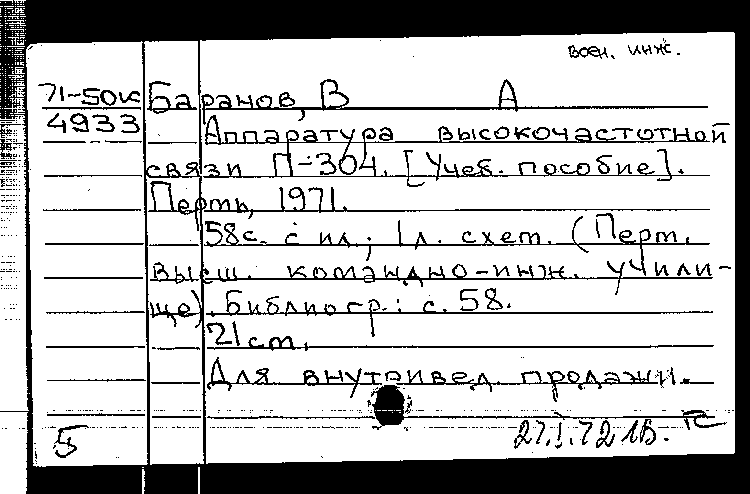 воен. инж.
71-50к Баранов, В А
4933 Аппаратура высокочастотной
связи П-304. [Учеб. пособие].
Пермь, 1971.
58с. с ил.; 1л. схем. (Перм.
высш. командно-инж. учили-
ще). Библиогр.: с. 58.
21см.
Для внутривед. продажи.
5 27.I.72 1В. ТС